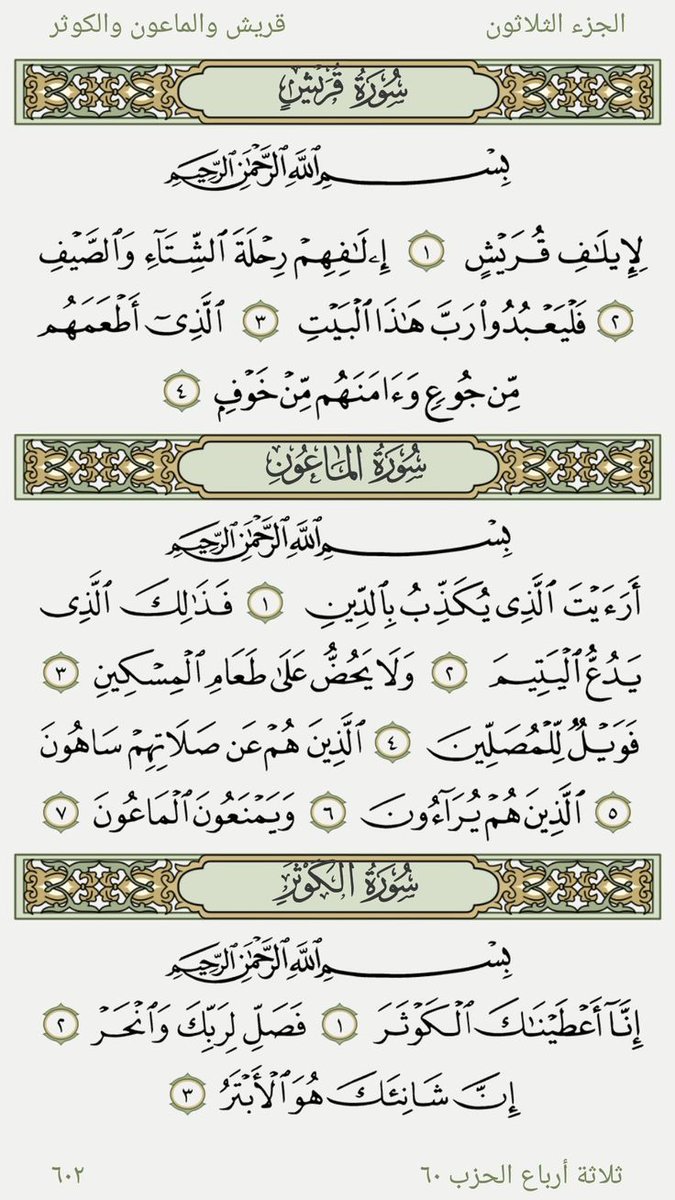 الجزء الثلاثون
قريش والماعون والكوثر
سُورَةُ قُرَيْشٍ
بِسْمِ ٱللَّهِ ٱلرَّحْمَٰنِ ٱلرَّحِيمِ
لِإِيلَٰفِ قُرَيْشٍ ١ إِۦلَٰفِهِمْ رِحْلَةَ ٱلشِّتَآءِ وَٱلصَّيْفِ
٢ فَلْيَعْبُدُوا۟ رَبَّ هَٰذَا ٱلْبَيْتِ ٣ ٱلَّذِىٓ أَطْعَمَهُم
مِّن جُوعٍ وَءَامَنَهُم مِّنْ خَوْفٍۭ ٤
سُورَةُ المَاعُونِ
بِسْمِ ٱللَّهِ ٱلرَّحْمَٰنِ ٱلرَّحِيمِ
أَرَءَيْتَ ٱلَّذِى يُكَذِّبُ بِٱلدِّينِ ١ فَذَٰلِكَ ٱلَّذِى
يَدُعُّ ٱلْيَتِيمَ ٢ وَلَا يَحُضُّ عَلَىٰ طَعَامِ ٱلْمِسْكِينِ ٣
فَوَيْلٌ لِّلْمُصَلِّينَ ٤ ٱلَّذِينَ هُمْ عَن صَلَاتِهِمْ سَاهُونَ
٥ ٱلَّذِينَ هُمْ يُرَآءُونَ ٦ وَيَمْنَعُونَ ٱلْمَاعُونَ ٧
سُورَةُ الكَوْثَرِ
بِسْمِ ٱللَّهِ ٱلرَّحْمَٰنِ ٱلرَّحِيمِ
إِنَّآ أَعْطَيْنَٰكَ ٱلْكَوْثَرَ ١ فَصَلِّ لِرَبِّكَ وَٱنْحَرْ ٢
إِنَّ شَانِئَكَ هُوَ ٱلْأَبْتَرُ ٣
ثلاثة أرباع الحزب ٦٠
٦٠٢